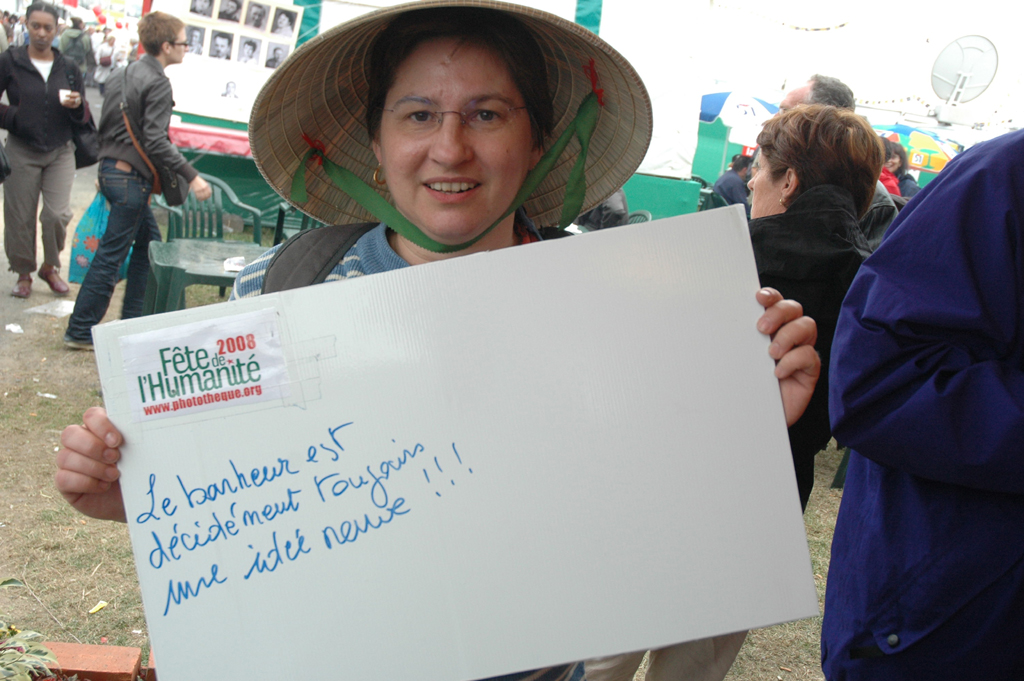 2008
Fête de
l'Humanité
www.phototheque.org
Le bonheur est
décidément toujours
une idée neuve !!!